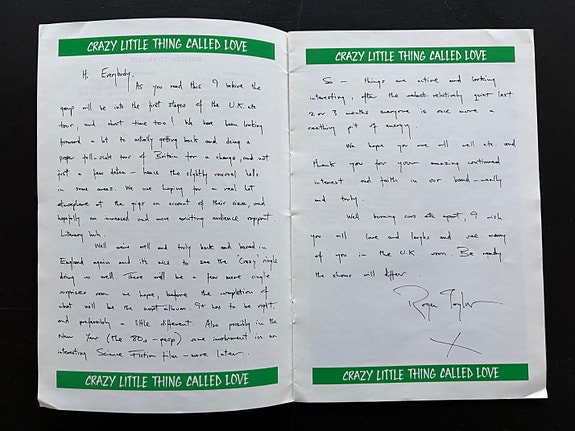 CRAZY LITTLE THING CALLED LOVE
Hi Everybody.
As you read this I believe the
group will be into the first stages of the U.K. etc
tour, and about time too! We have been looking
forward a lot to actually getting back and doing a
proper full-scale tour of Britain for a change, and not
just a few dates - hence the slightly unusual halls
in some areas. We are hoping for a real hot
atmosphere at the gigs on account of their sizes, and
hopefully an increased and more exciting audience rapport
Literary huh.
Well we're well and truly back and based in
England again and its nice to see the 'Crazy' single
doing so well. There will be a few more single
surprises soon we hope, before the completion of
what will be the next album. It has to be right,
and preferably a little different. Also possibly in the
New Year (the 80s - gasp) some involvement in an
interesting Science Fiction film - more later.
CRAZY LITTLE THING CALLED LOVE
CRAZY LITTLE THING CALLED LOVE
So - things are active and looking
interesting, after the relatively quiet last
2 or 3 months everyone is once more a
seething pit of energy.
We hope you are all well etc and
thank you for your amazing continued
interest and faith in our band - really
and truly.
Well burning cars etc apart, I wish
you all love and laughs and see many
of you in the U.K. soon. Be ready
the shows will differ
Roger Taylor
X
CRAZY LITTLE THING CALLED LOVE